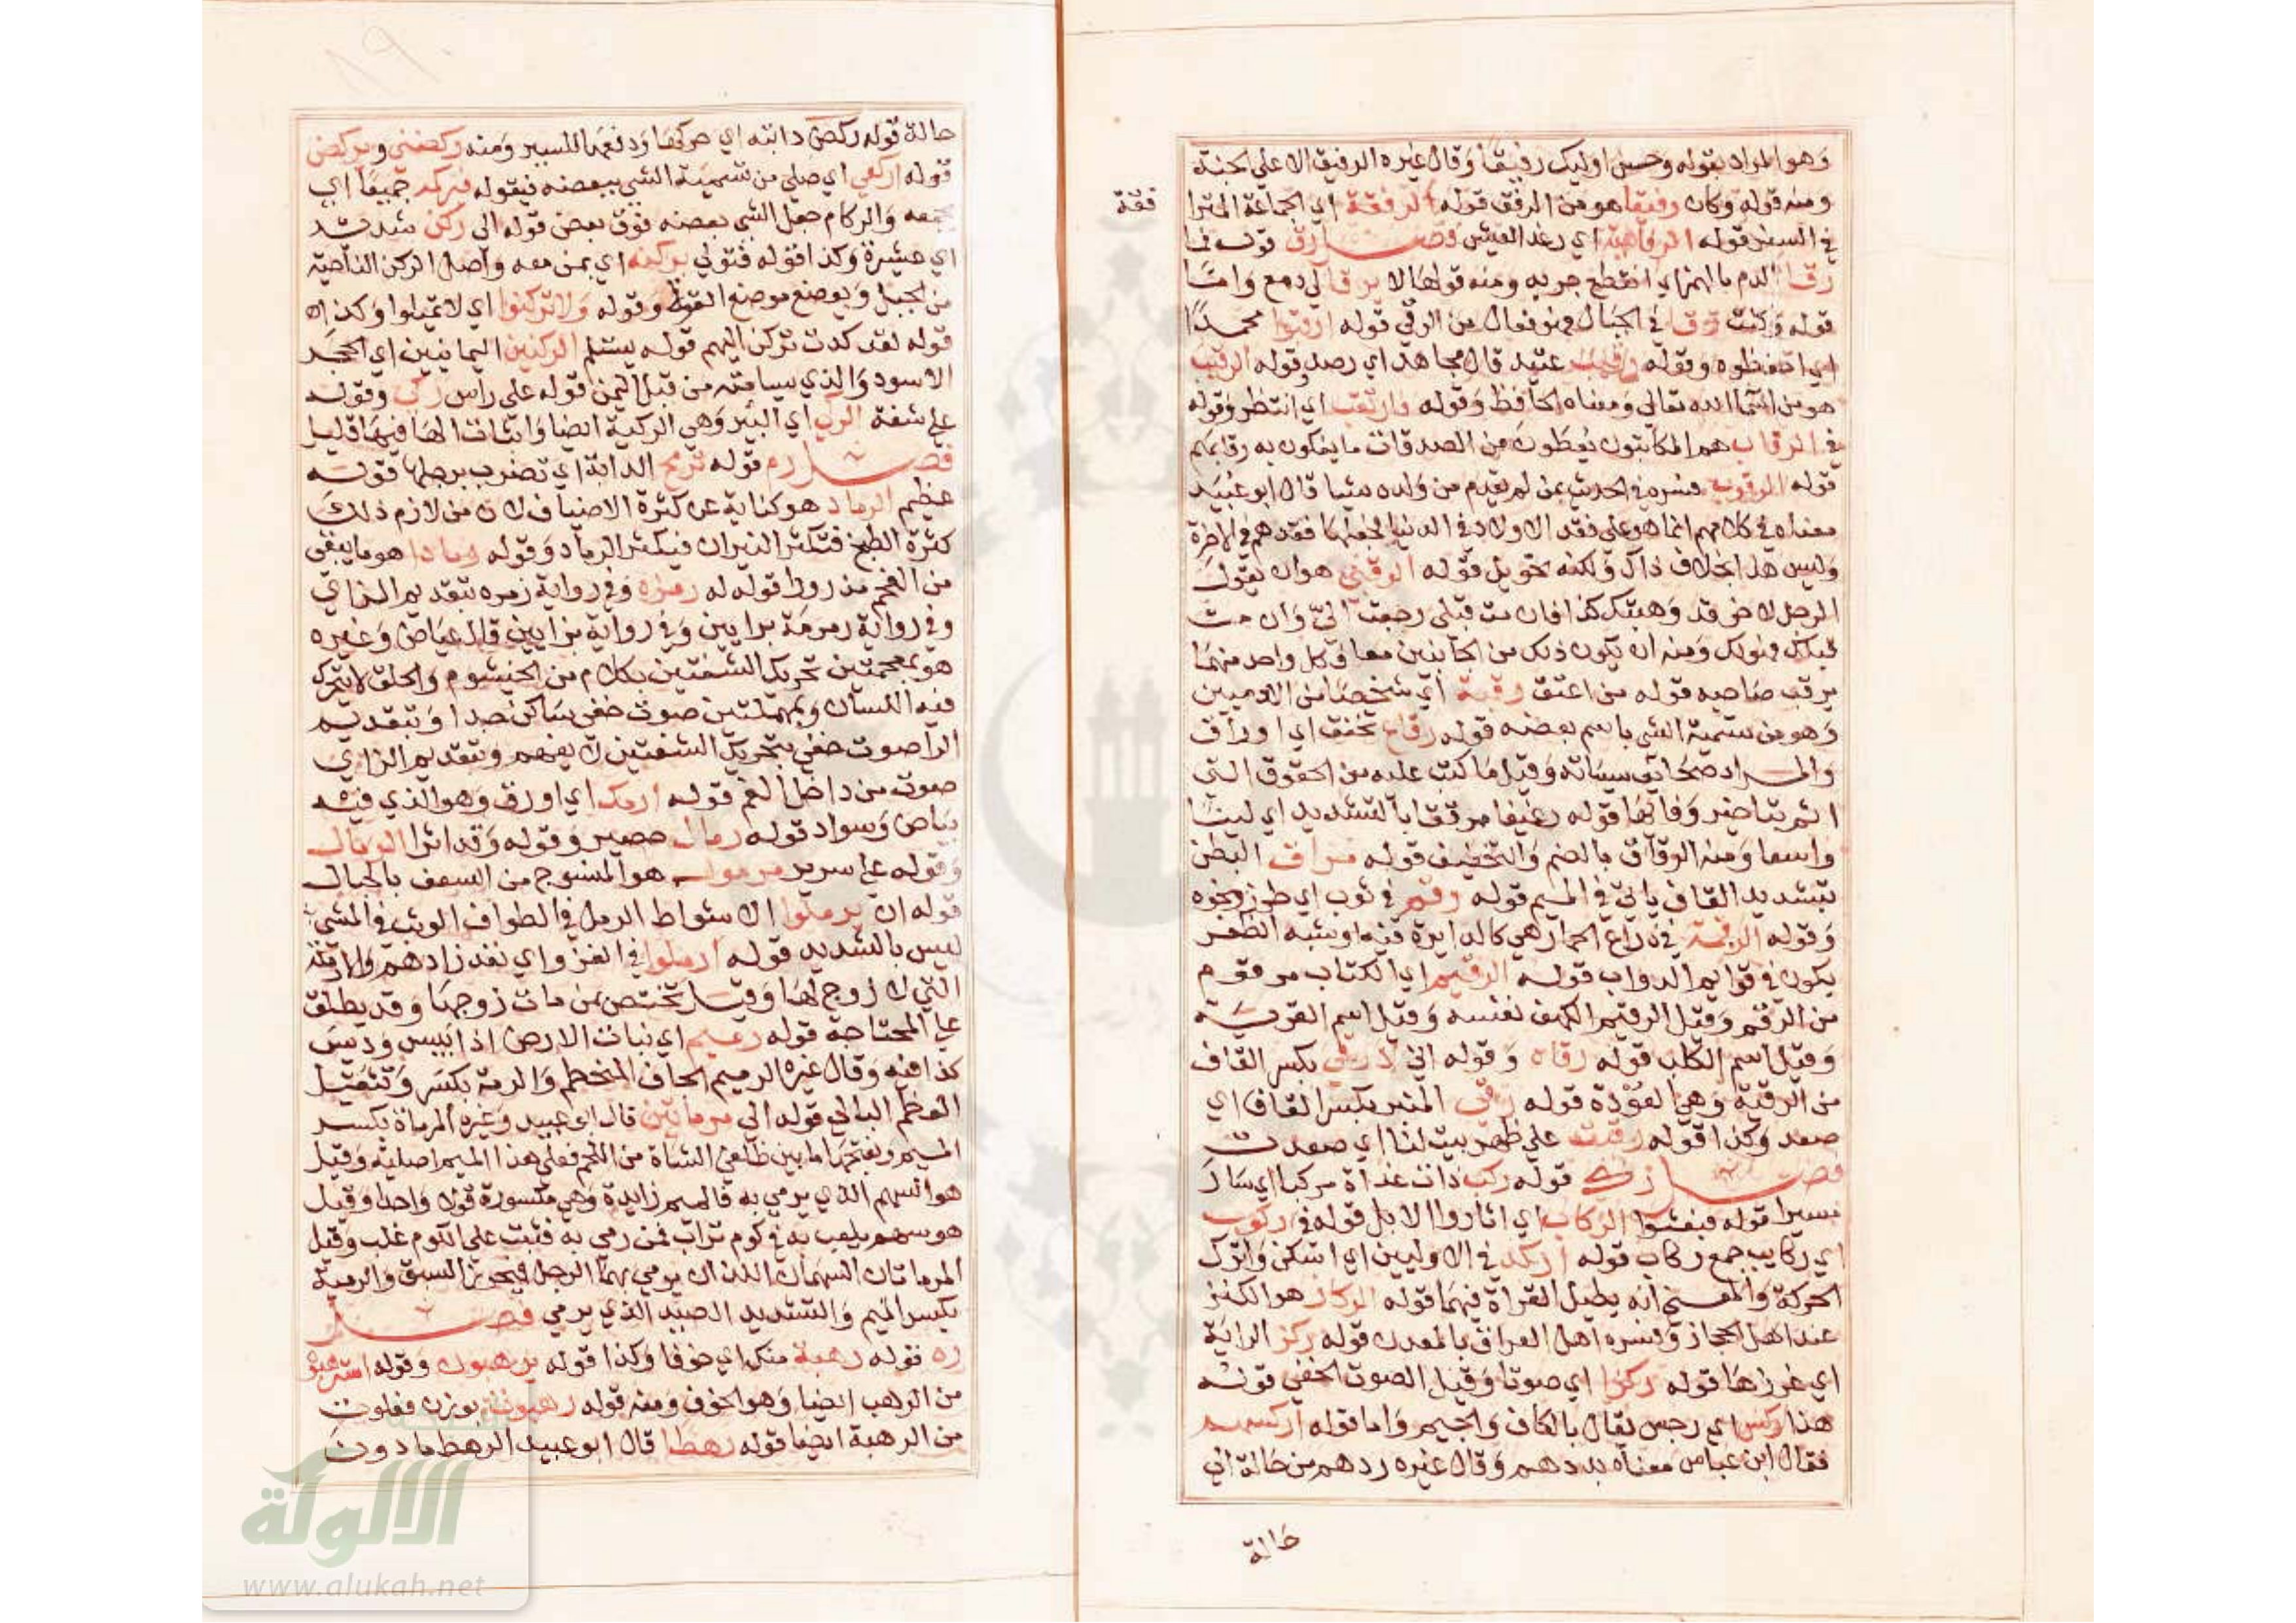 وهو المراد بقوله وحسن اوليك رفيقا وقال غيره الرفيق الاعلي الجنة
ومنه قوله وكان رفيقا هو من الرفق قوله الرفقة اي الجماعة المترا
فقة
في السفر قوله الرفاهية اي رغد العيش فصل رق قوله فما
رقا الدم بالهمز اي انقطع جريه ومنه قولها لا يرقا لي دمع واما
قوله وكنت رقا في الجبال فهو فعال من الرقي قوله ارقبوا محمدا
اي احفظوه وقوله رقيب عتيد قال مجاهد اي رصد وقوله الرقيب
هو من اسما الله تعالي ومعناه الحافظ وقوله وارتقب اي انتظر وقوله
في الرقاب هم المكاتبون يعطون من الصدقات ما يفكون به رقابهم
قوله الرقوب فسره في الحديث بمن لم يقدم من ولده شيا قال ابو عبيد
معناه في كلامهم انما هو علي فقد الاولاد في الدنيا فجعلها فقدهم في الاخرة
وليس هذا بخلاف ذاك ولكنه تحويل قوله الرقبي هو ان يقول
الرجل لاخر قد وهبتك كذا فان مت قبلي رجعت الي وان مت
قبلك فهو لك ومنه ان يكون ذلك من الجانبين معا وكل واحد منهما
يرقب صاحبه قوله من اعتق رقبة اي شخصا من الادميين
وهو من تسمية الشي باسم بعضه قوله رقاع تخفق اي اوراق
والمراد صحايف سياته وقيل ما كتب عليه من الحقوق التي
اثم بتاخير وفائها قوله رغيفا مرققا بالتشديد اي لينا
واسعا ومنه الرقاق بالضم والتخفيف قوله مراق البطن
بتشديد القاف ياتي في الميم قوله رقم في ثوب اي طرز ونحوه
وقوله الرقمة في ذراع الحمار هي كالدايرة فيه او شبه الظفر
يكون في قوايم الدواب قوله الرقيم اي الكتاب مرقوم
من الرقم وقيل الرقيم الكهف نفسه وقيل اسم القرية
وقيل اسم الكلب قوله رقاه وقوله اني لا رقي بكسر القاف
من الرقية وهي العوذة قوله رقي المنبر بكسر القاف اي
صعد وكذا قوله رقيت علي ظهر بيت لنا اي صعدت
فصل رك قوله ركب ذات غداة مركبا اي سار
مسيرا قوله فبعثوا الركاب اي اثاروا الابل قوله في ركوب
اي ركايب جمع ركاب قوله اركد في الاوليين اي اسكن واترك
الحركة والمعني انه يطيل القراة فيهما قوله الركاز هو الكنز
عند اهل الحجاز وفسره اهل العراق بالمعدن قوله ركز الراية
اي غرزها قوله ركزا اي صوتا وقيل الصوت الخفي قوله
هذا ركس اي رجس يقال بالكاف والجيم واما قوله اركسهم
فقال ابن عباس معناه بددهم وقال غيره ردهم من حالة الي
حالة
حالة قوله ركض دابته اي حركها ودفعها للسير ومنه ركضني ويركض
قوله اركعي اي صلي من تسمية الشي ببعضه فيقوله فيركمه جميعا اي
يجمعه والركام جعل الشي بعضه فوق بعض قوله الي ركن شديد
اي عشيرة وكذا قوله فتولي بركنه اي بمن معه واصل الركن الناحية
من الجبل ويوضع موضع القوة وقوله ولا تركنوا اي لا تميلوا وكذا
قوله لقد كدت تركن اليهم قوله يستلم الركنين اليمانيين اي الحجر
الاسود والذي يسامته من قبل اليمن قوله علي راس ركي وقوله
علي شفة الركي اي البير وهي الركية ايضا واثبات الها فيها قليل
فصل رم قوله ترمح الدابة اي تضرب برجلها قوله
عظيم الرماد هو كناية عن كثرة الاضياف لان من لازم ذلك
كثرة الطبخ فتكثر النيران فيكثر الرماد وقوله رمادا هو ما يبقي
من الفحم مذرورا قوله له رمزة وفي رواية زمره بتقديم الزاي
وفي رواية رمرمة برايين وفي رواية بزايين قال عياض وغيره
هو بمعجمتين تحريك الشفتين بكلام من الخيشوم والحلق لا يتحرك
فيه اللسان وبمهملتين صوت خفي ساكن جدا وبتقديم
الرا صوت خفي بتحريك الشفتين لا يفهم وبتقديم الزاي
صوت من داخل الفم قوله ارمك اي اورق وهو الذي فيه
بياض وسواد قوله رمال حصير وقوله وقد اثر الرمال
وقوله علي سرير مرمول هو المنسوج من السعف بالحبال
قوله ان يرملوا الاشواط الرمل في الطواف الوثب في المشي
ليس بالشديد قوله ارملوا في الغزو اي نفد زادهم والارملة
التي لا زوج لها وقيل تختص بمن مات زوجها وقد يطلق
علي المحتاجة قوله رميم اي نبات الارض اذا يبس وديس
كذا فيه وقال غيره الرميم الجاف المتحطم والرمة بكسر وتثقيل
العظم البالي قوله الي مرماتين قال ابو عبيد وغيره المرماة بكسر
الميم وبفتحها ما بين ظلفي الشاة من اللحم فعلي هذا الميم اصلية وقيل
هو السهم الذي يرمي به فالميم زايدة وهي مكسورة قولا واحدا وقيل
هو سهم يلعب به في كوم تراب فمن رمي به فثبت علي الكوم غلب وقيل
المرماتان السهمان اللذان يرمي بهما الرجل فيحرز السبق والرمية
بكسر الميم والتشديد الصيد الذي يرمي فصل
ره قوله رهبة منك اي خوفا وكذا قوله يرهبون وقوله استرهبو
من الرهب ايضا وهو الخوف ومنه قوله رهبوت بوزن فعلوت
من الرهبة ايضا قوله رهطا قال ابو عبيد الرهط ما دون
الألوكة
www.alukah.net